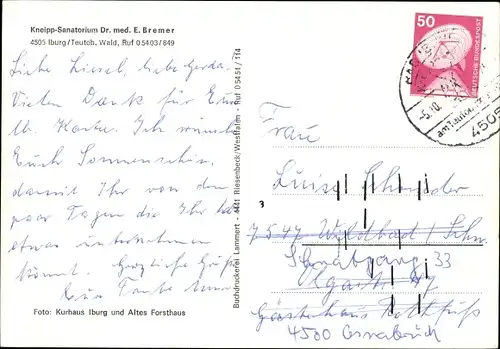 Kneipp-Sanatorium Dr. med. E. Bremer
4505 Iburg/Teutob. Wald, Ruf 05403/849
Liebe Liesel, liebe Gerda.
Vielen Dank für Eure
lb. Karte. Ich wünsche
Euch Sonnenschein,
damit Ihr von den
paar Tagen die Ihr habt
etwas unternehmen
könnt. Herzliche Grüße
Eure Tante
Foto: Kurhaus Iburg und Altes Forsthaus
Buchdruckerei Lammert - 4441 Riesenbeck/Westfalen - Ruf 05454/114
50
DEUTSCHE BUNDESPOST
4505
Frau
Luise Schröder
3
7547 Wildbad/Schw.
33
Gästehaus
4500 Osnabrück